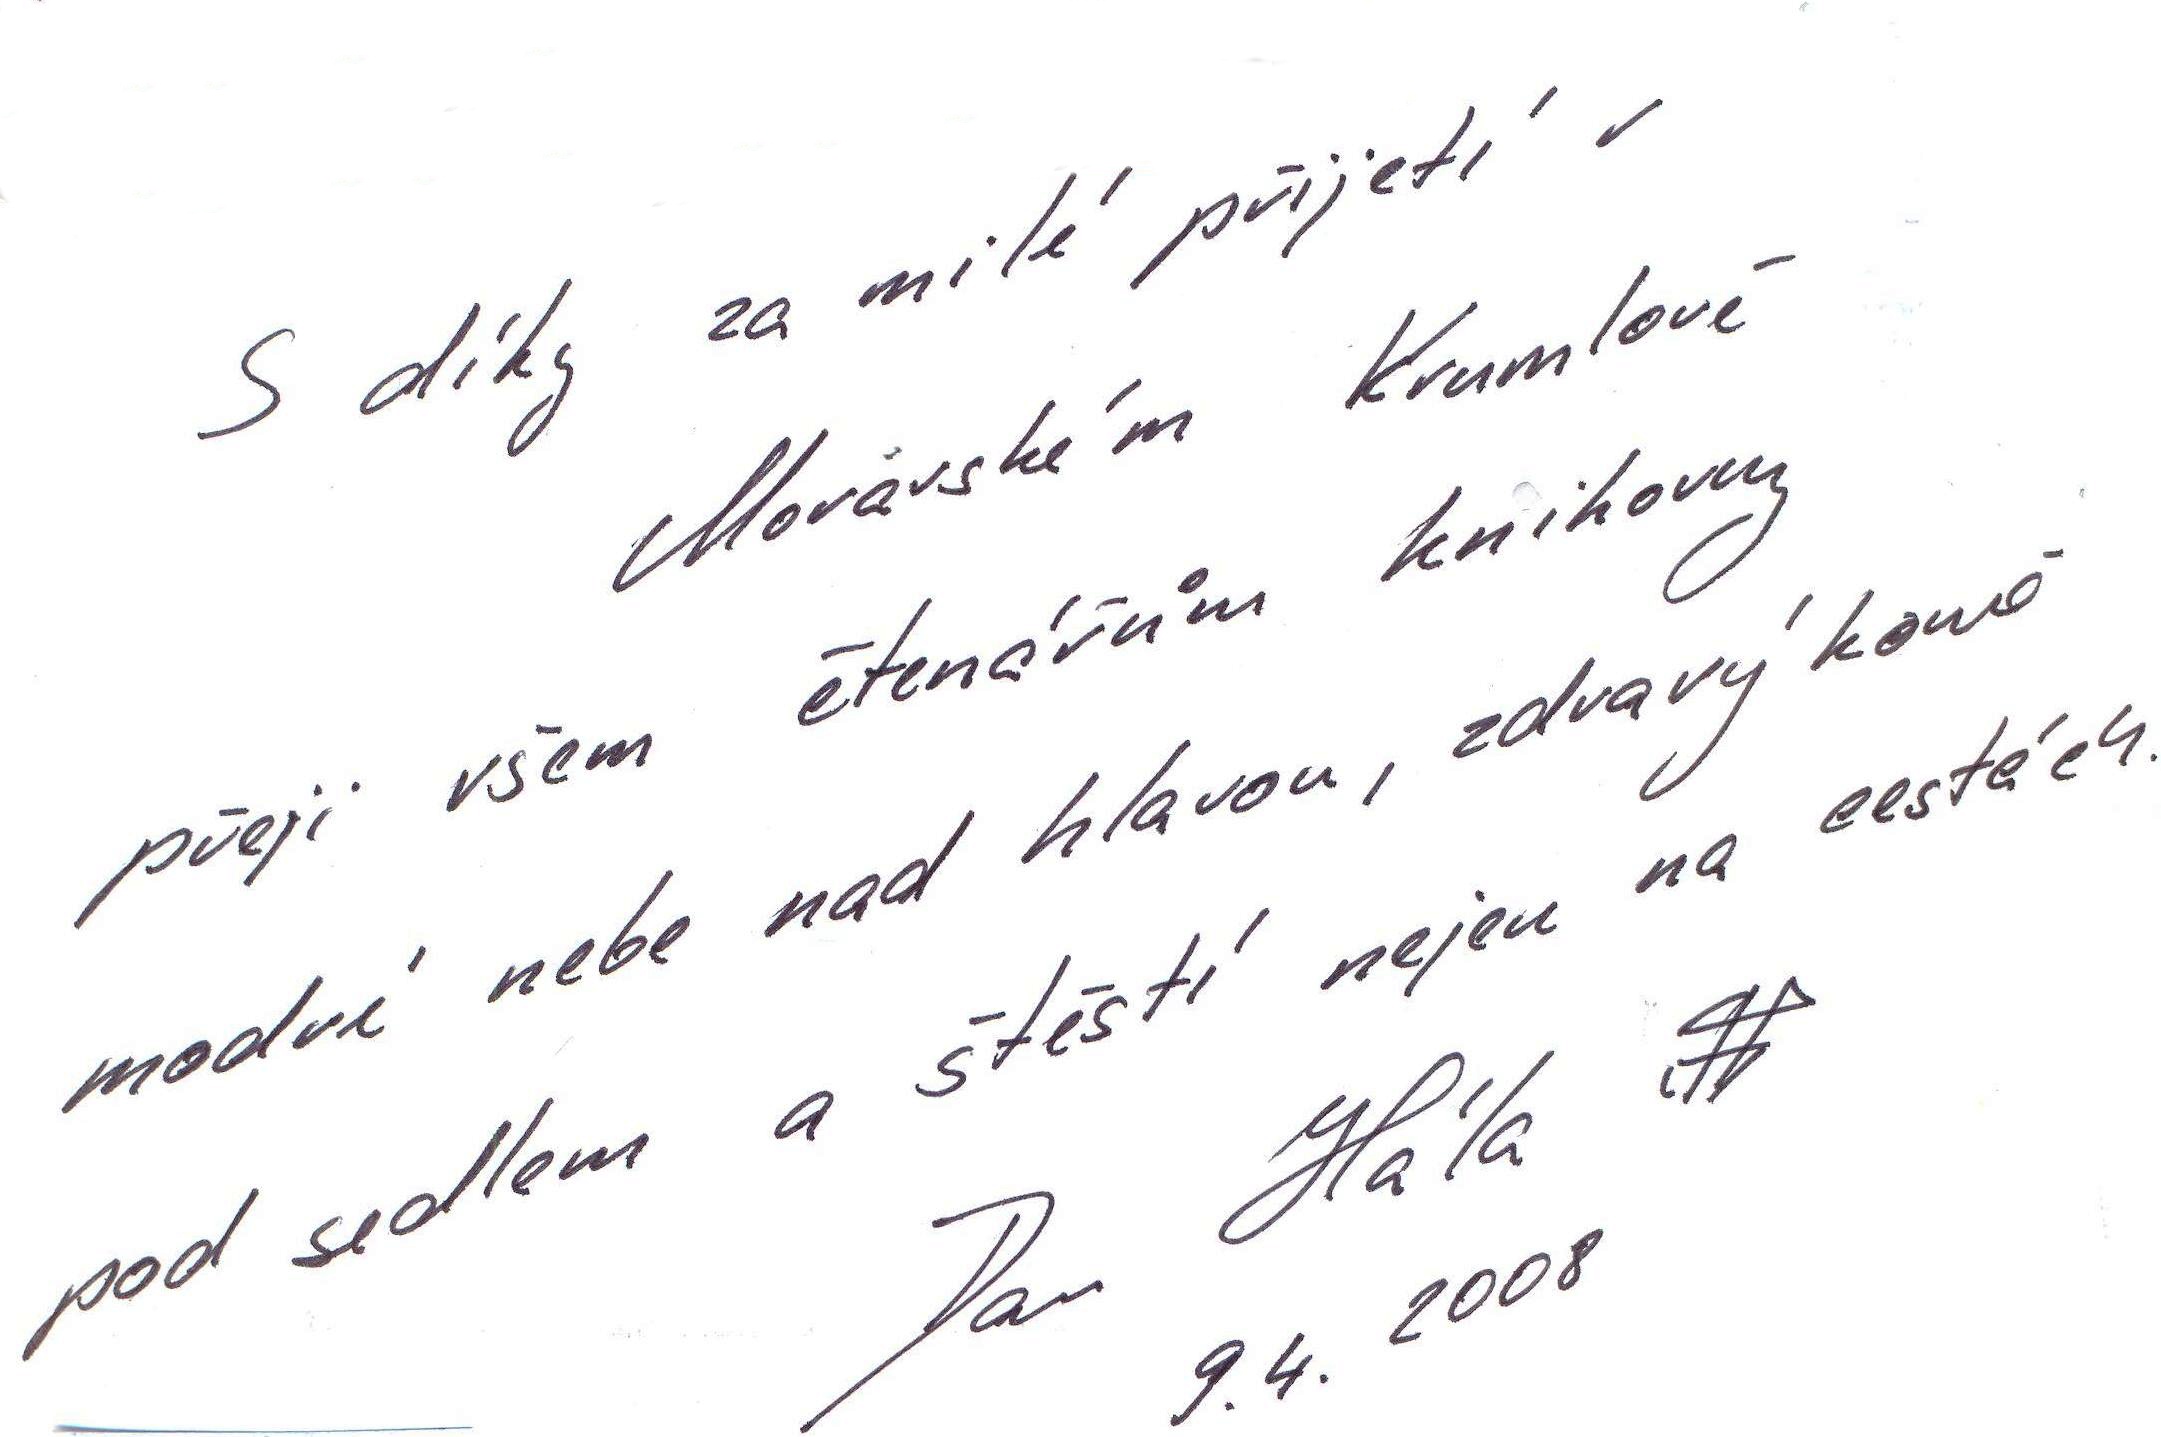 S díky za milé přijetí v
Moravském Krumlově
přeji všem čtenářům knihovny
modré nebe nad hlavou, zdravý koně
pod sedlem a štěstí nejen na cestách.
Jan Hála
9.4. 2008